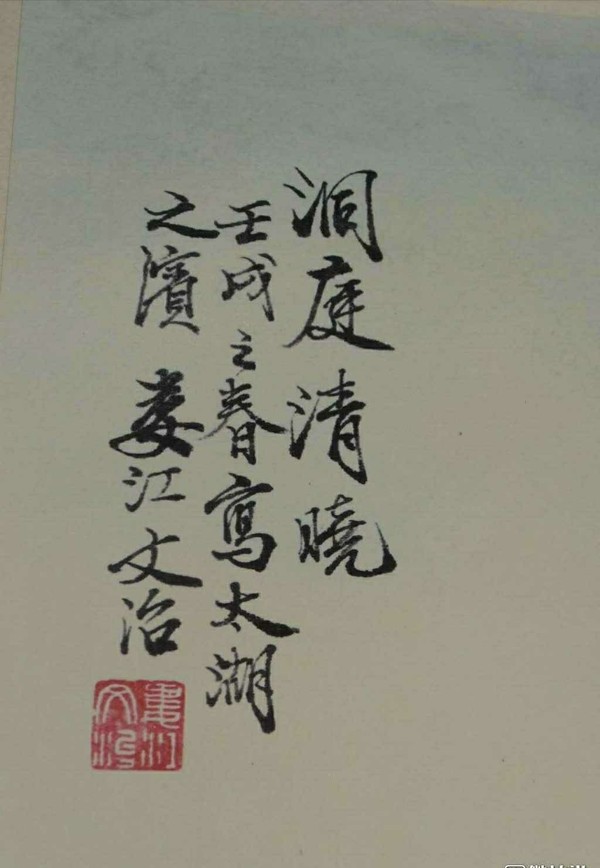 洞庭清曉
壬戌之春寫太湖
之濱 婁江文治